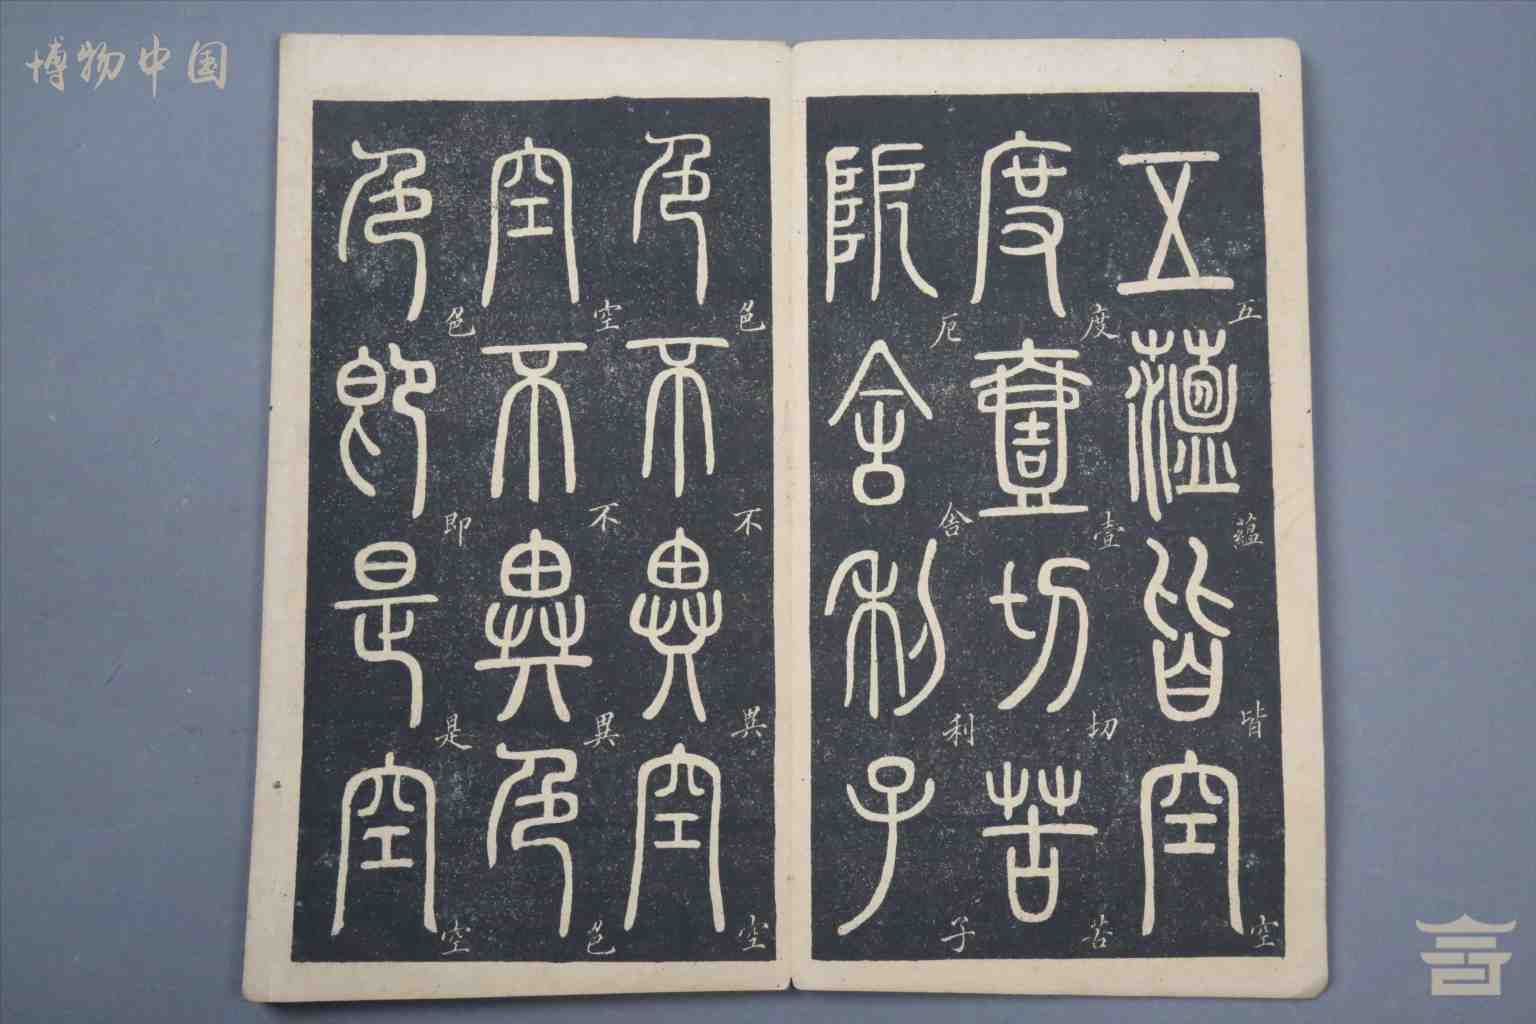 博物中国
五蘊皆空
五蘊皆空
度壹切苦
度壹切苦
阨舍利子
厄舍利子
色不異空
色不異空
空不異色
空不異色
色即是空
色即是空